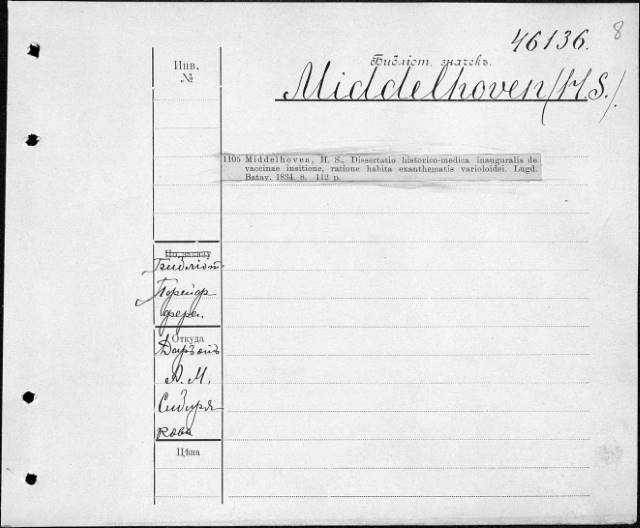 46136. 8
Инв.
№
Библіот. значекъ.
Middelhoven (H. S.)
1105 Middelhoven, H. S., Dissertatio historico-medica inauguralis de
vaccinae insitione, ratione habita exanthematis varioloidei. Lugd.
Batav. 1834. 8. 112 p.
Библіот.
Откуда
Даръ отъ
А. М.
Сибиря
кова
Цѣна